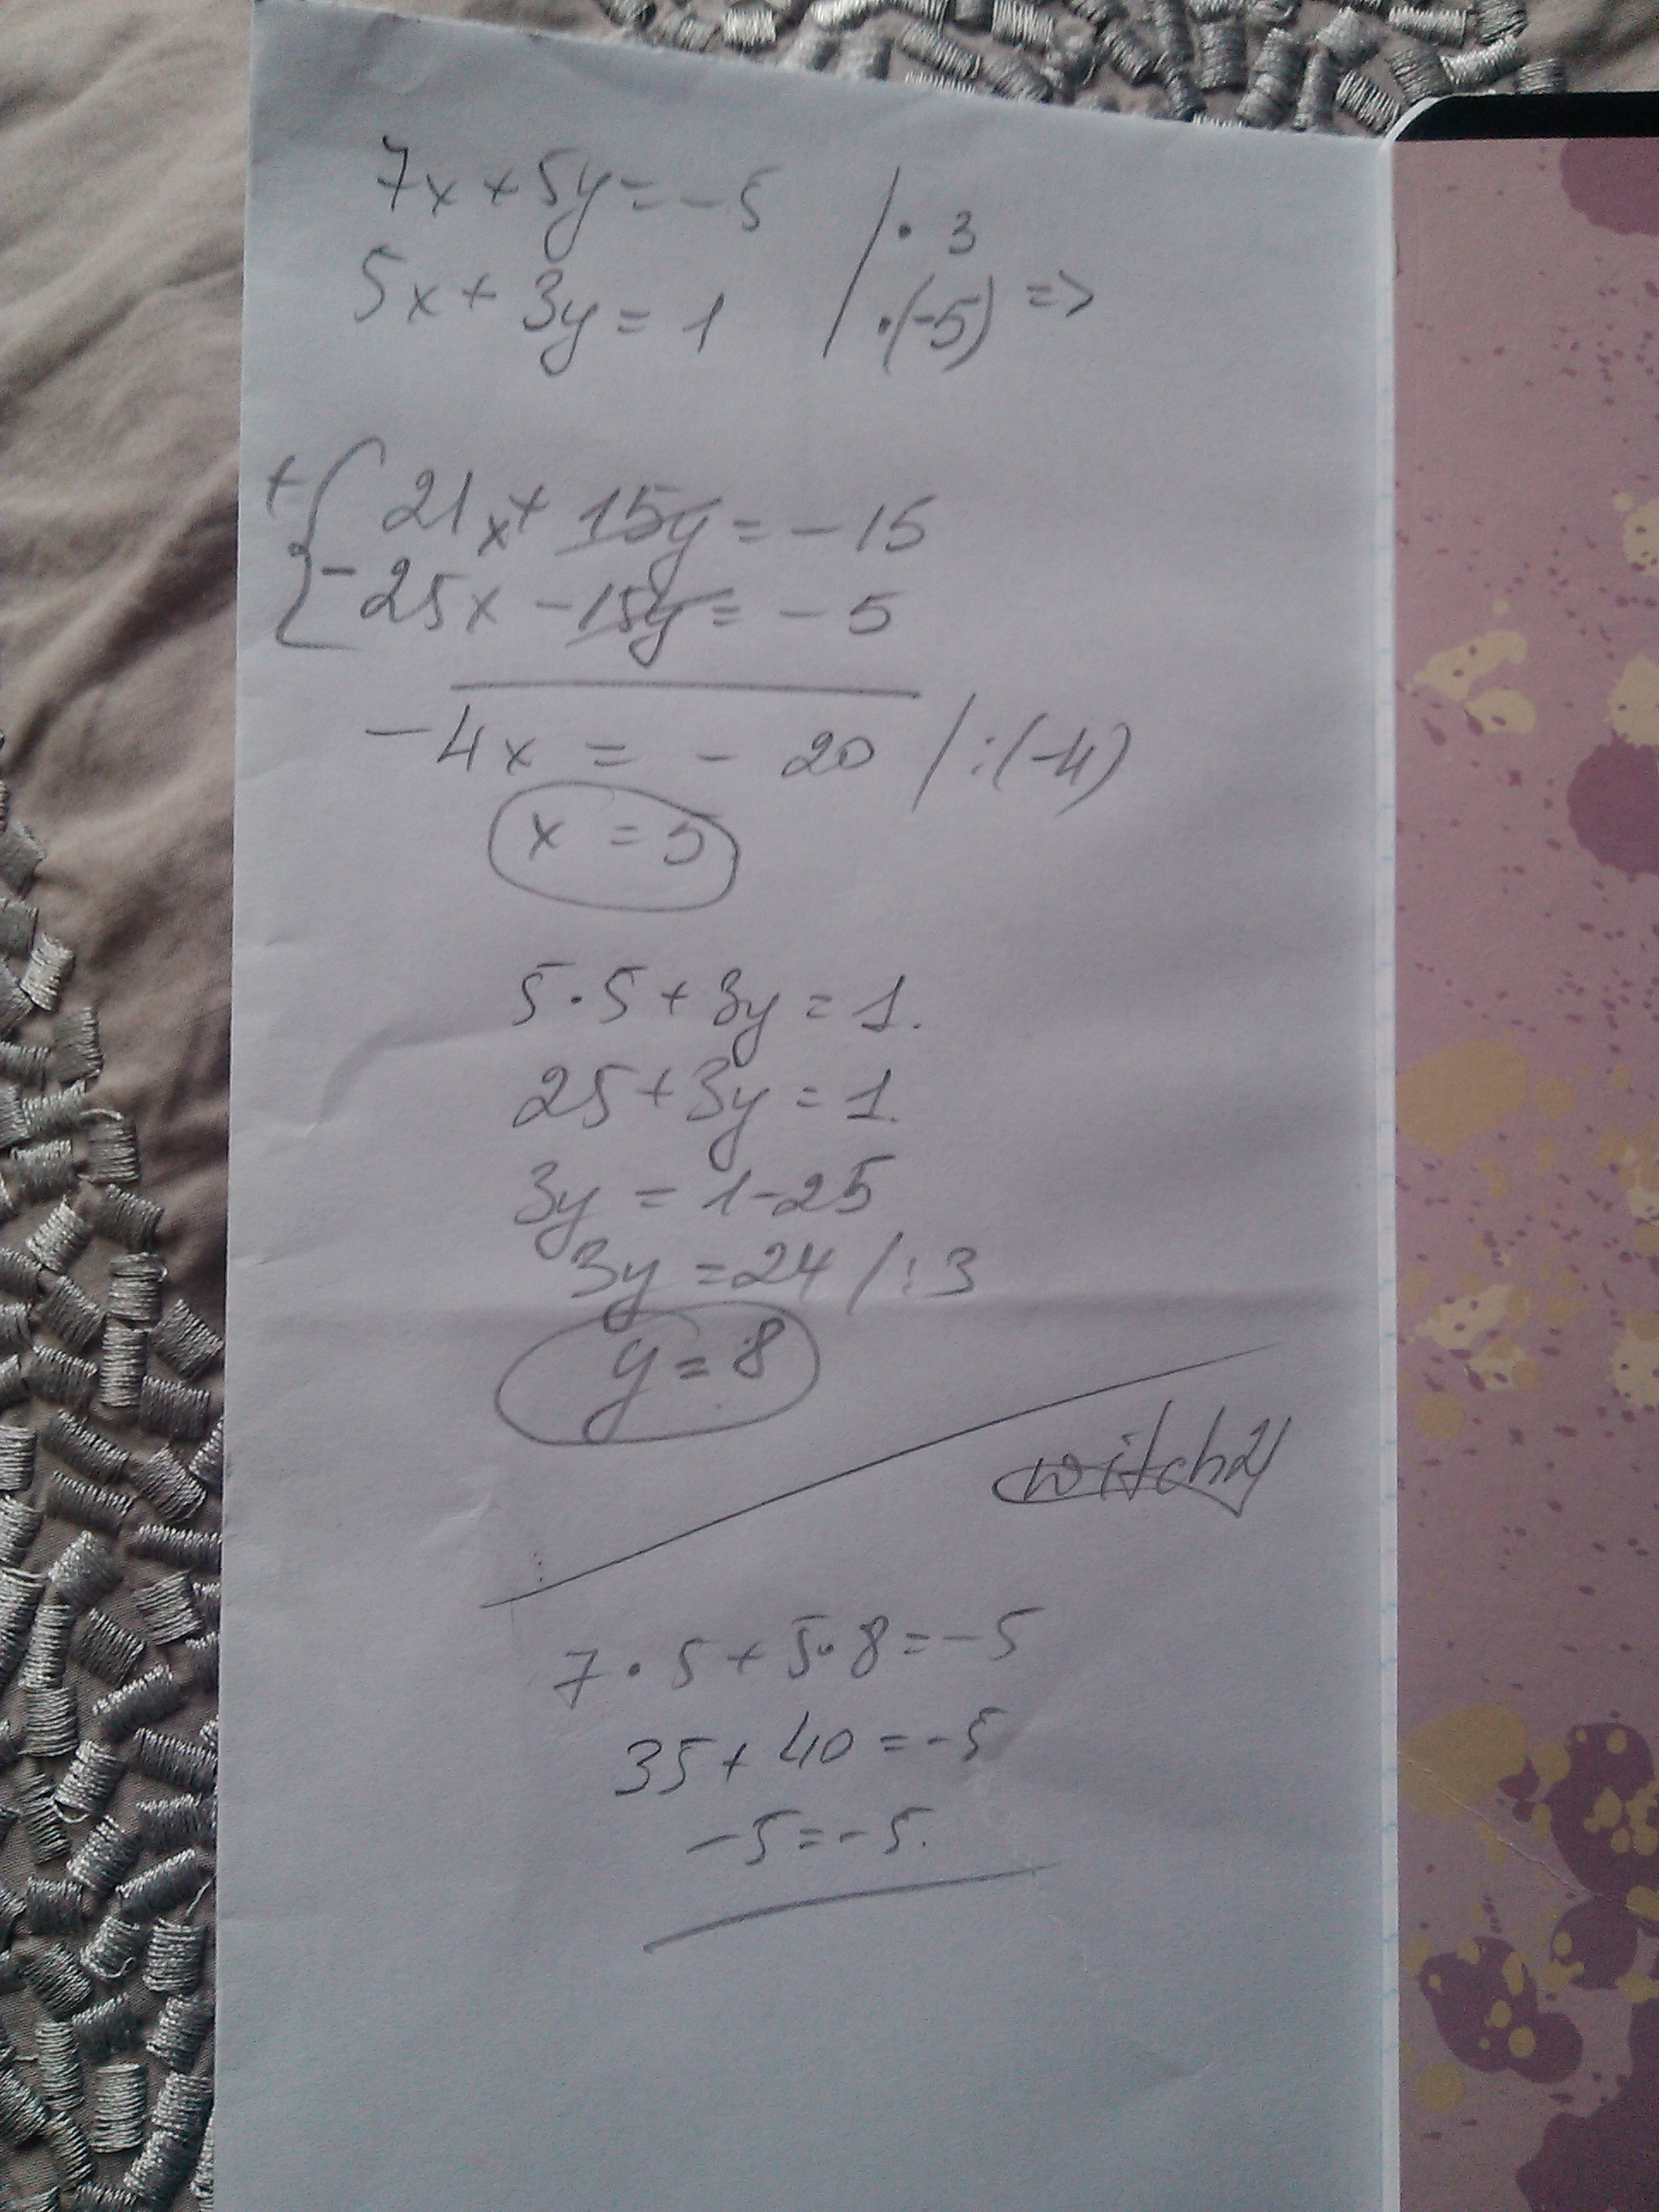 7x + 5y = - 5 | · 3
5x + 3y = 1 | · (-5) =>
+ { 21x + 15y = - 15
- 25x - 15y = - 5
- 4x = - 20 / : (-4)
x = 5
5 · 5 + 3y = 1.
25 + 3y = 1.
3y = 1 - 25
3y = 24 / : 3
y = 8
witch21
7 · 5 + 5 · 8 = - 5
35 + 40 = - 5
- 5 = - 5.